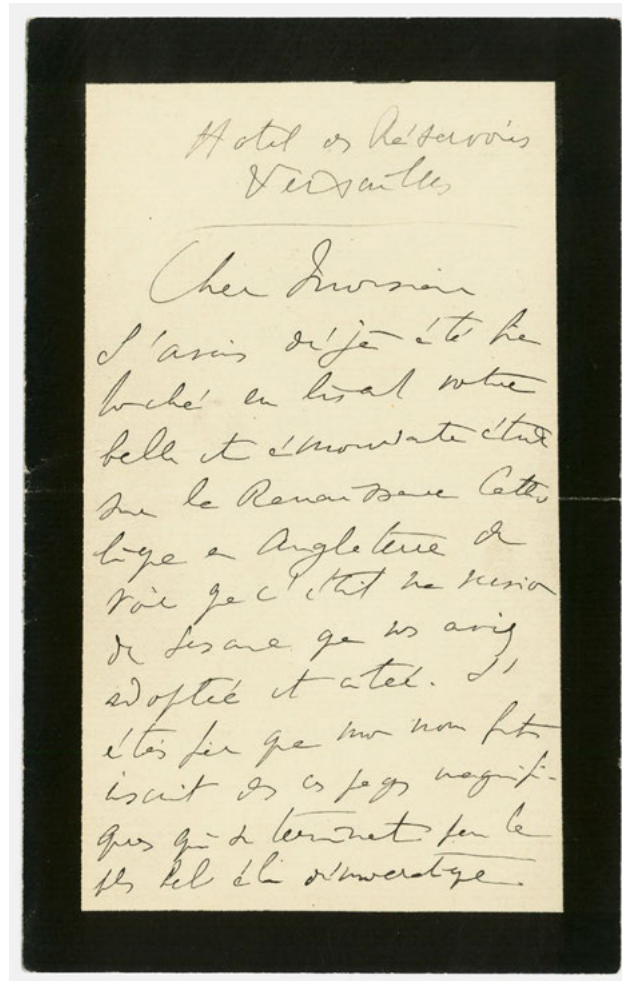 Hotel des Réservoirs
Versailles
Cher Monsieur
J'avais déjà été bien
touché en lisant votre
belle et émouvante étude
sur la Renaissance Catho
lique en Angleterre de
voir que c'était ma version
de Sesame que vs aviez
adoptée et citée. J'
étais fier que mon nom fut
inscrit ds ces pages magnifi-
ques qui se terminent par le
plus bel élan démocratique